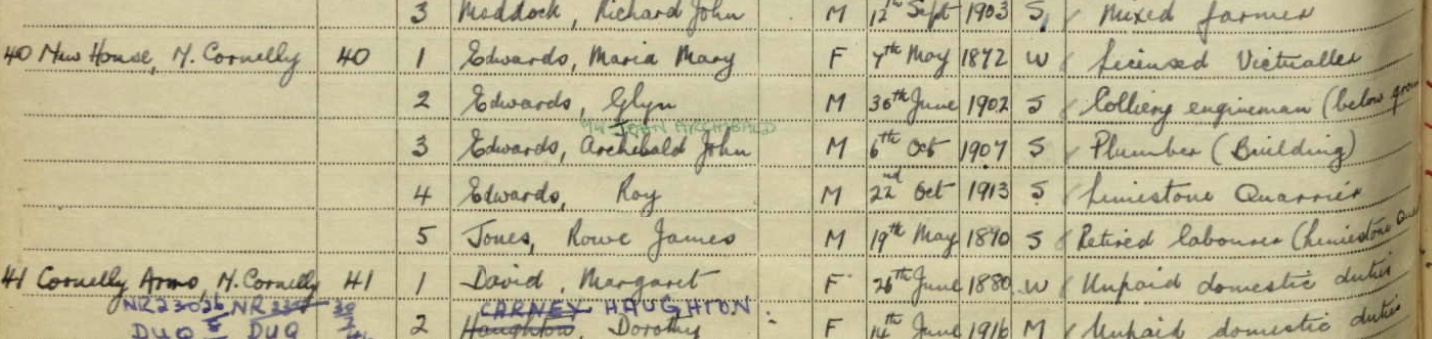 3 Maddock, Richard John M 12th Sept 1903 S Mixed farmer
40 New House, N. Cornelly 40 1 Edwards, Maria Mary F 7th May 1872 W Licensed Victualler
2 Edwards, Glyn M 30th June 1902 S Colliery engineman (below
JOHN ARCHIBALD
3 Edwards, Archibald John M 6th Oct 1907 S Plumber (Building)
4 Edwards, Roy M 22nd Oct 1913 S Limestone Quarrier
5 Jones, Rowe James M 19th May 1870 S Retired labourer (Limestone
41 Cornelly Arms, N. Cornelly 41 1 David, Margaret F 26th June 1880 W Unpaid domestic duties
NR230 NR CARNEY HAUGHTON
DUQ DUQ 2 Haughton, Dorothy F 14th June 1916 M Unpaid domestic duties